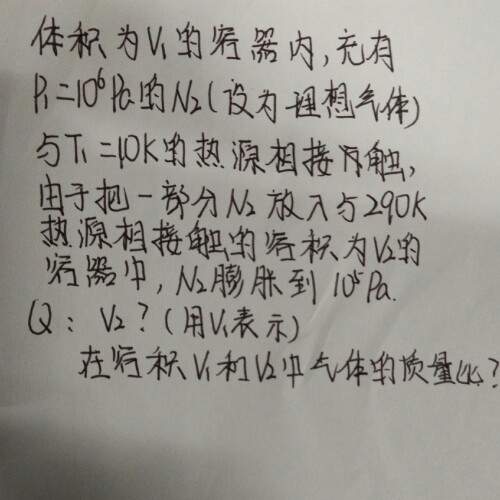 体积为V₁的容器内,充有
P₁=10⁶Pa的N₂(设为理想气体)
与T₁=10K的热源相接触,
由于把一部分N₂放入与290K
热源相接触的容积为V₂的
容器中,N₂膨胀到10⁵Pa.
Q:V₂?(用V₁表示)
在容积V₁和V₂中气体的质量比?